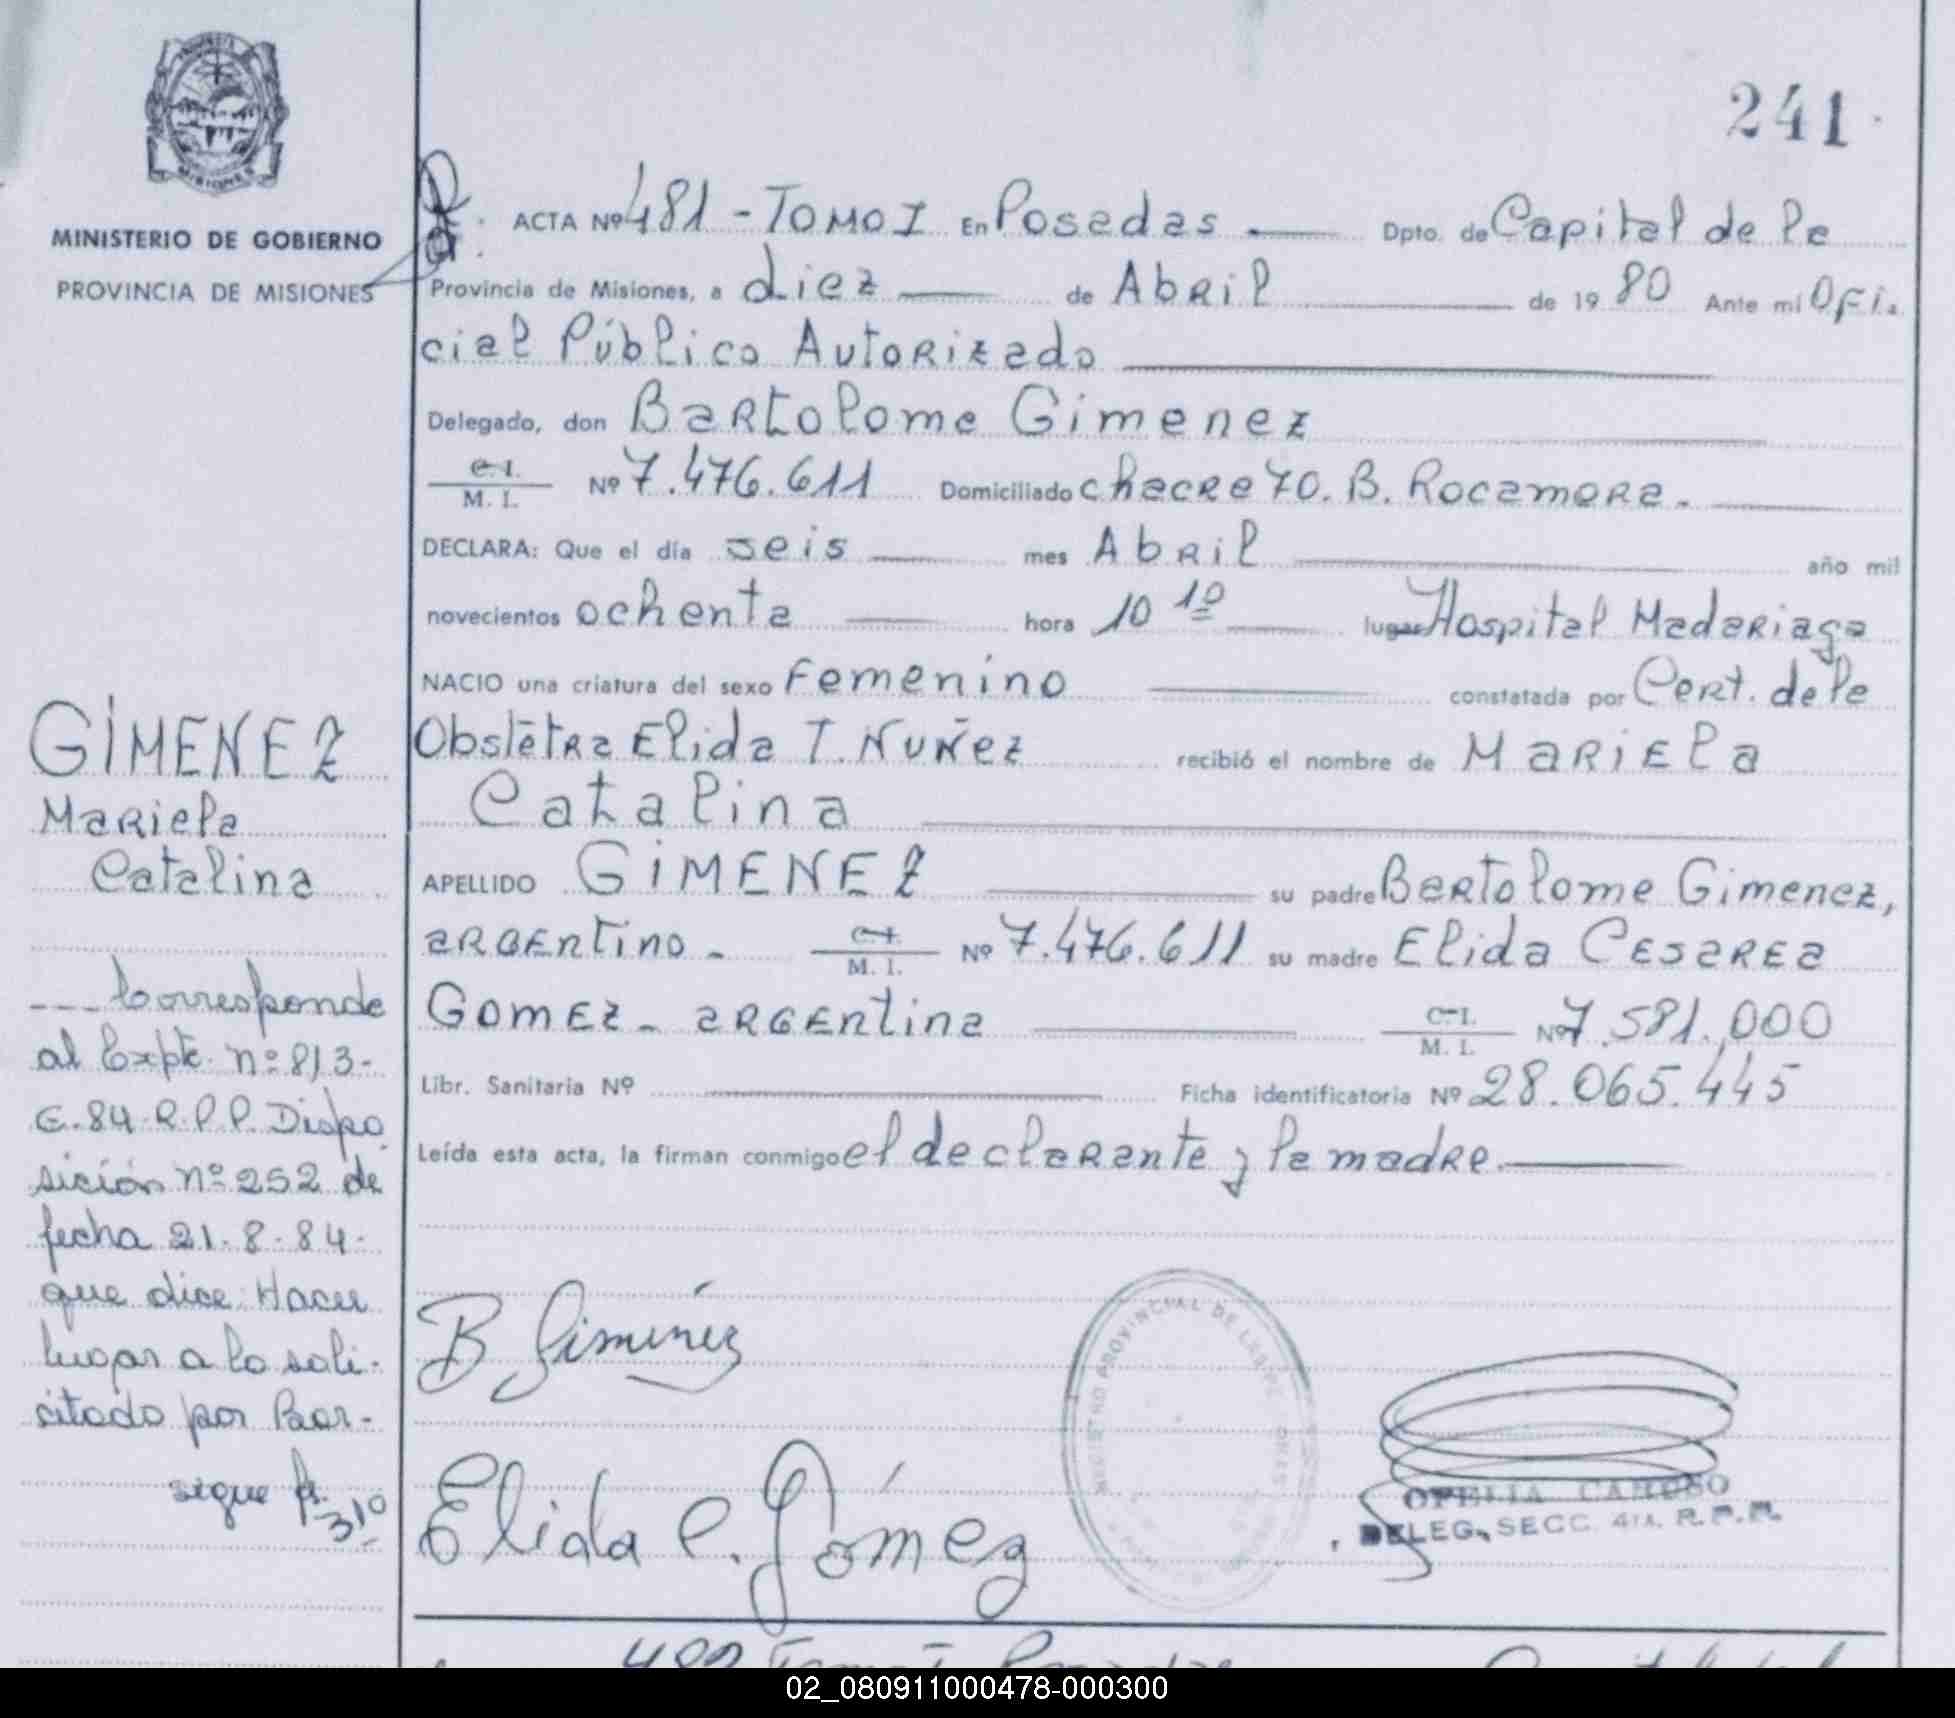 241
MISIONES
MINISTERIO DE GOBIERNO
PROVINCIA DE MISIONES
ACTA Nº 481 - TOMO I En Posadas Dpto. de Capital de la
Provincia de Misiones, a diez de Abril de 19 80 Ante mi Ofi.
cial Público Autorizado
Delegado, don Bartolome Gimenez
C.I. / M. I. Nº 7.476.611 Domiciliado chacra 70. B. Rocamora.
DECLARA: Que el día seis mes Abril año mil
novecientos ochenta hora 10 10 lugar Hospital Madariaga
NACIO una criatura del sexo Femenino constatada por Cert. de la
Obstétra Elida T. Nuñez recibió el nombre de Mariela
Catalina
APELLIDO GIMENEZ su padre Bartolome Gimenez,
argentino - C.I. / M. I. Nº 7.476.611 su madre Elida Cesarea
Gomez - argentina C.I. / M. I. Nº 7.581.000
Libr. Sanitaria Nº Ficha identificatoria Nº 28.065.445
Leída esta acta, la firman conmigo el declarante y la madre.
GIMENEZ
Mariela
Catalina
Corresponde
al Expte. nº 813-
G. 84. R.P.P. Dispo
sición nº 252 de
fecha 21-8-84-
que dice: Hacer
lugar a lo soli-
citado por
sigue
31º
B Giménez
Elida C. Gómez
REGISTRO PROVINCIAL DE LAS PERSONAS
OFELIA CARDOSO
DELEG. SECC. 4ta. R.P.P.
02_080911000478-000300